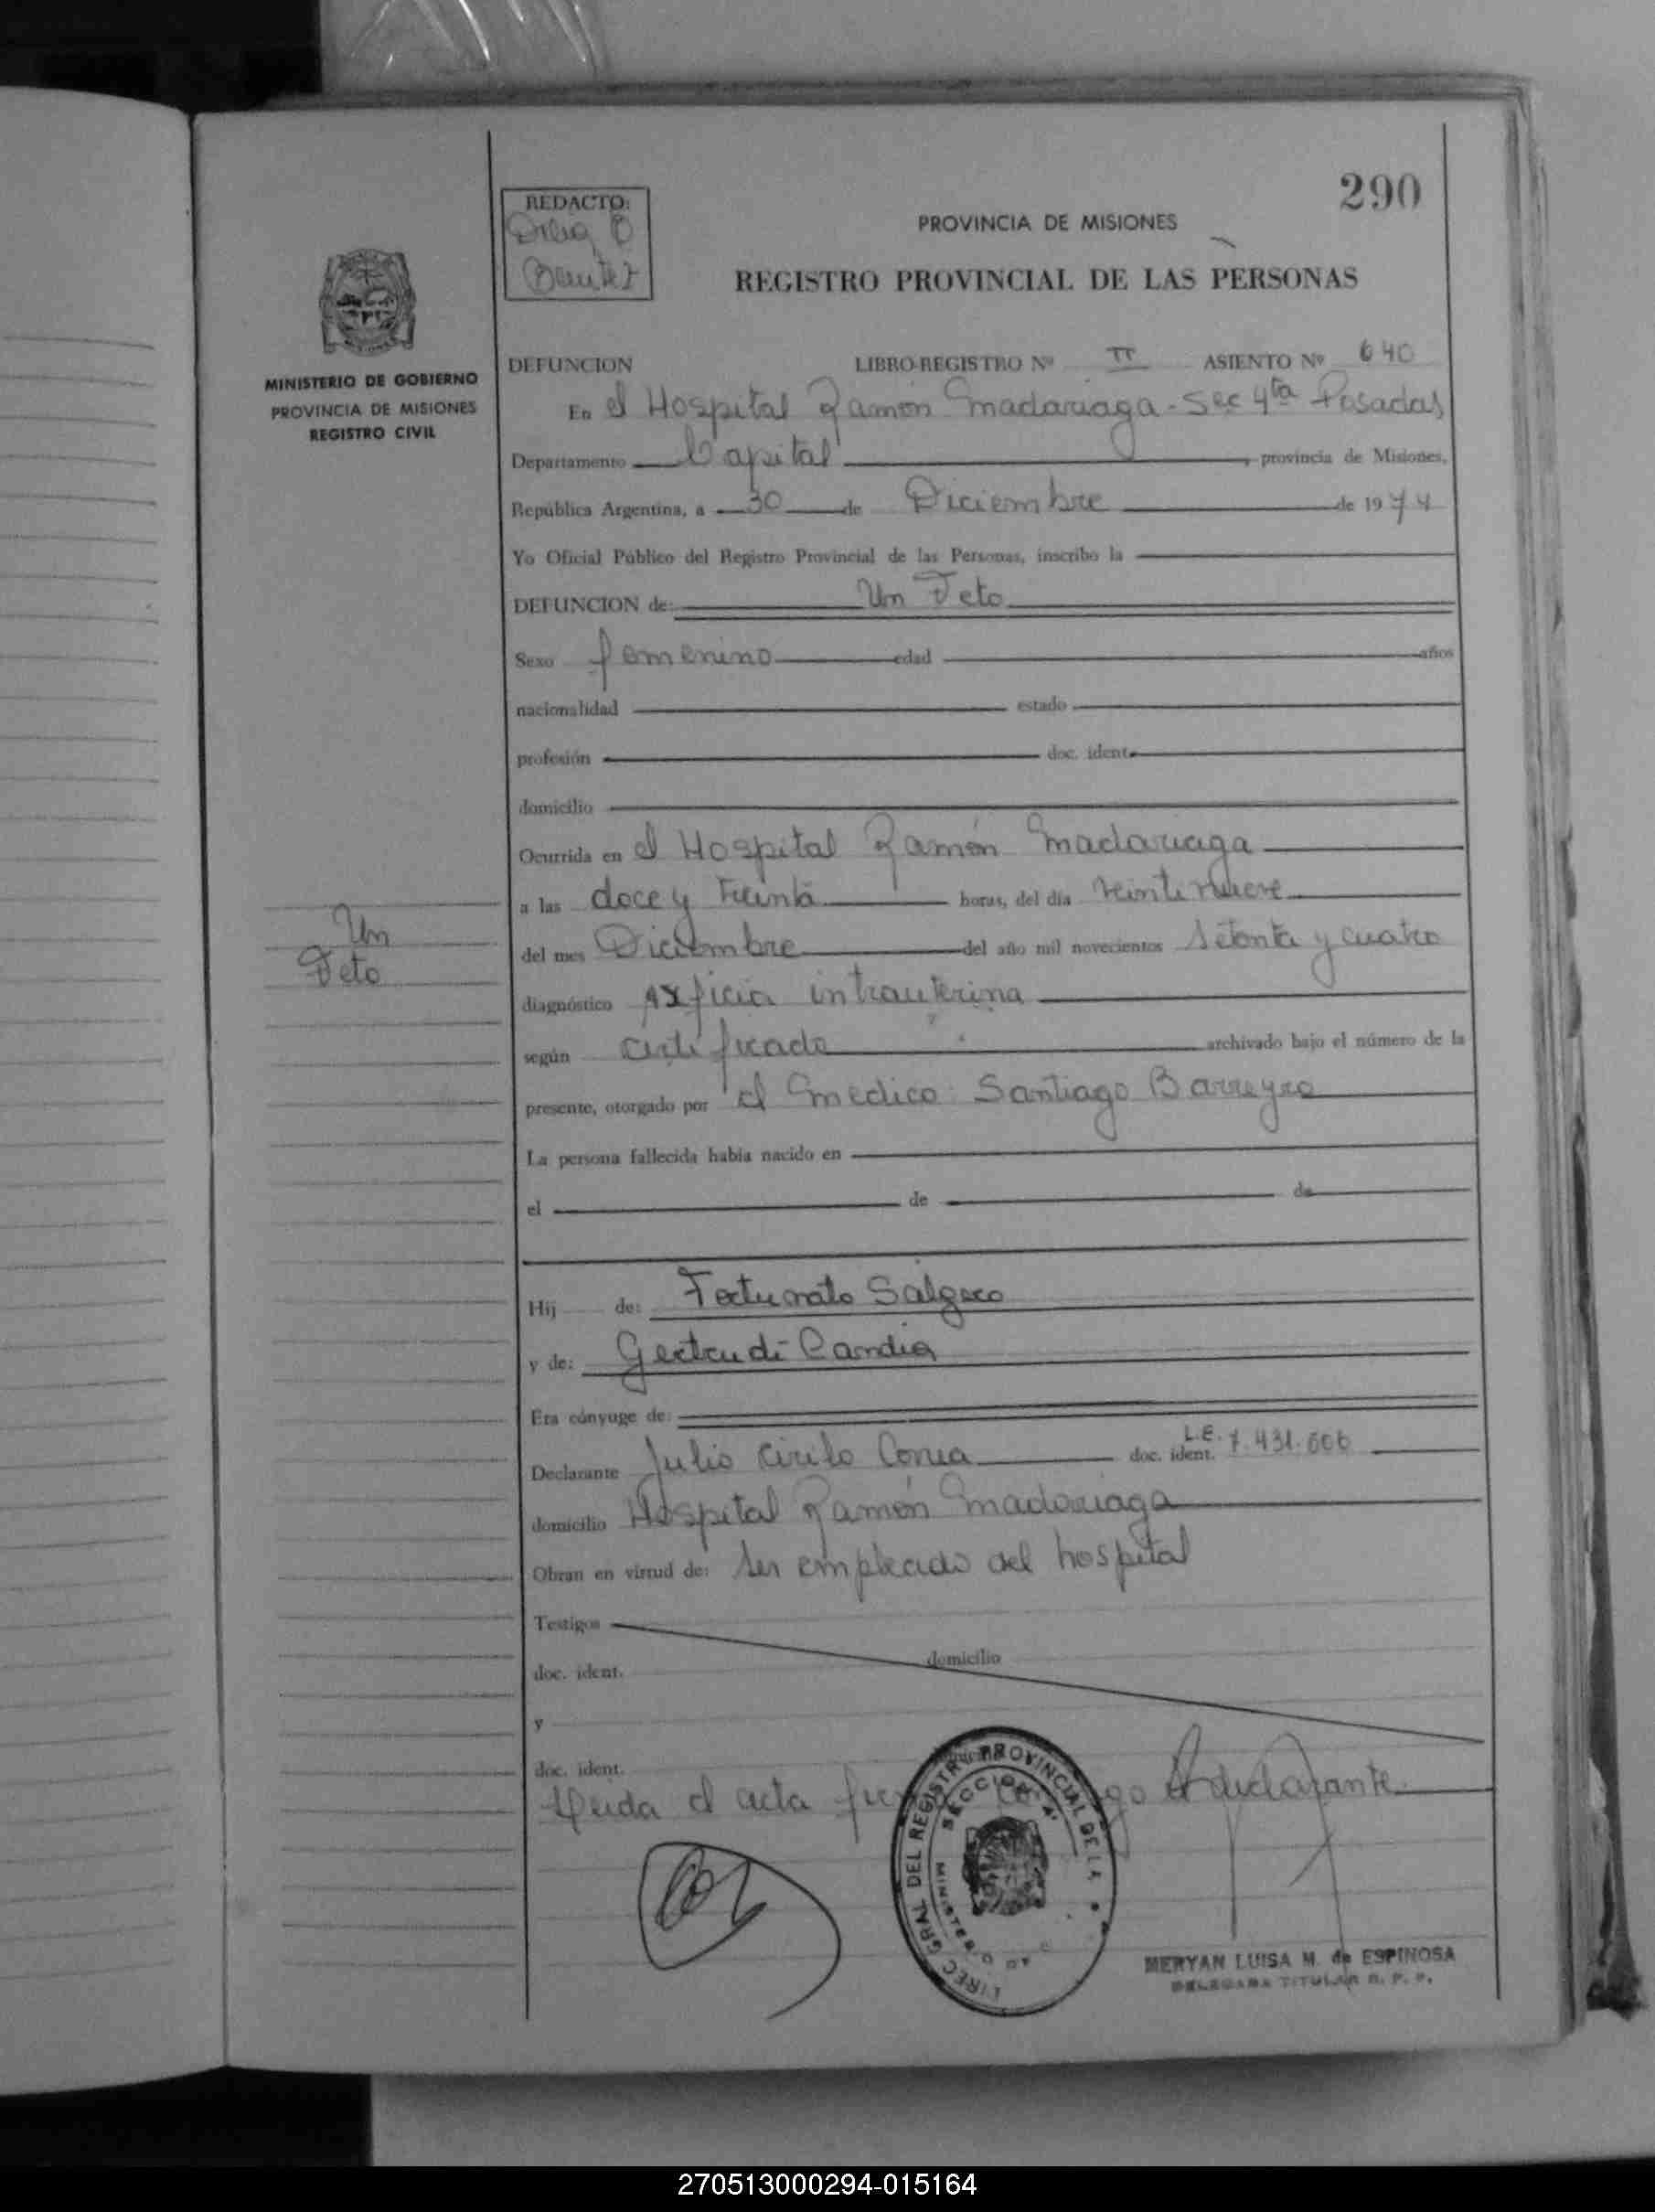 290
REDACTO:
Benitez
PROVINCIA DE MISIONES
REGISTRO PROVINCIAL DE LAS PERSONAS
MINISTERIO DE GOBIERNO
PROVINCIA DE MISIONES
REGISTRO CIVIL
DEFUNCION LIBRO-REGISTRO Nº II ASIENTO Nº 640
En el Hospital Ramón Madariaga - Sec 4ta Posadas
Departamento Capital, provincia de Misiones,
República Argentina, a 30 de Diciembre de 1974
Yo Oficial Público del Registro Provincial de las Personas, inscribo la
DEFUNCION de: Un Feto
Sexo femenino edad años
nacionalidad estado
profesión doc. ident.
domicilio
Ocurrida en el Hospital Ramón Madariaga
a las doce y treinta horas, del día veintinueve
Un
Feto
del mes Diciembre del año mil novecientos setenta y cuatro
diagnóstico Axficia intrauterina
según certificado archivado bajo el número de la
presente, otorgado por el medico: Santiago Barreyro
La persona fallecida había nacido en
el de de
Hij de: Fortunato Salgero
y de: Gertrudi Candia
Era cónyuge de:
Declarante Julio Cirilo Correa doc. ident. L.E. 7.431.606
domicilio Hospital Ramón Madariaga
Obran en virtud de: ser empleado del hospital
Testigos
doc. ident. domicilio
y
doc. ident.
Leida el acta el declarante
DIREC GRAL DEL REGISTRO PROVINCIAL DE LA
SECCION 4ª
MERYAN LUISA M. de ESPINOSA
DELEGADA TITULAR R. P. P.
270513000294-015164